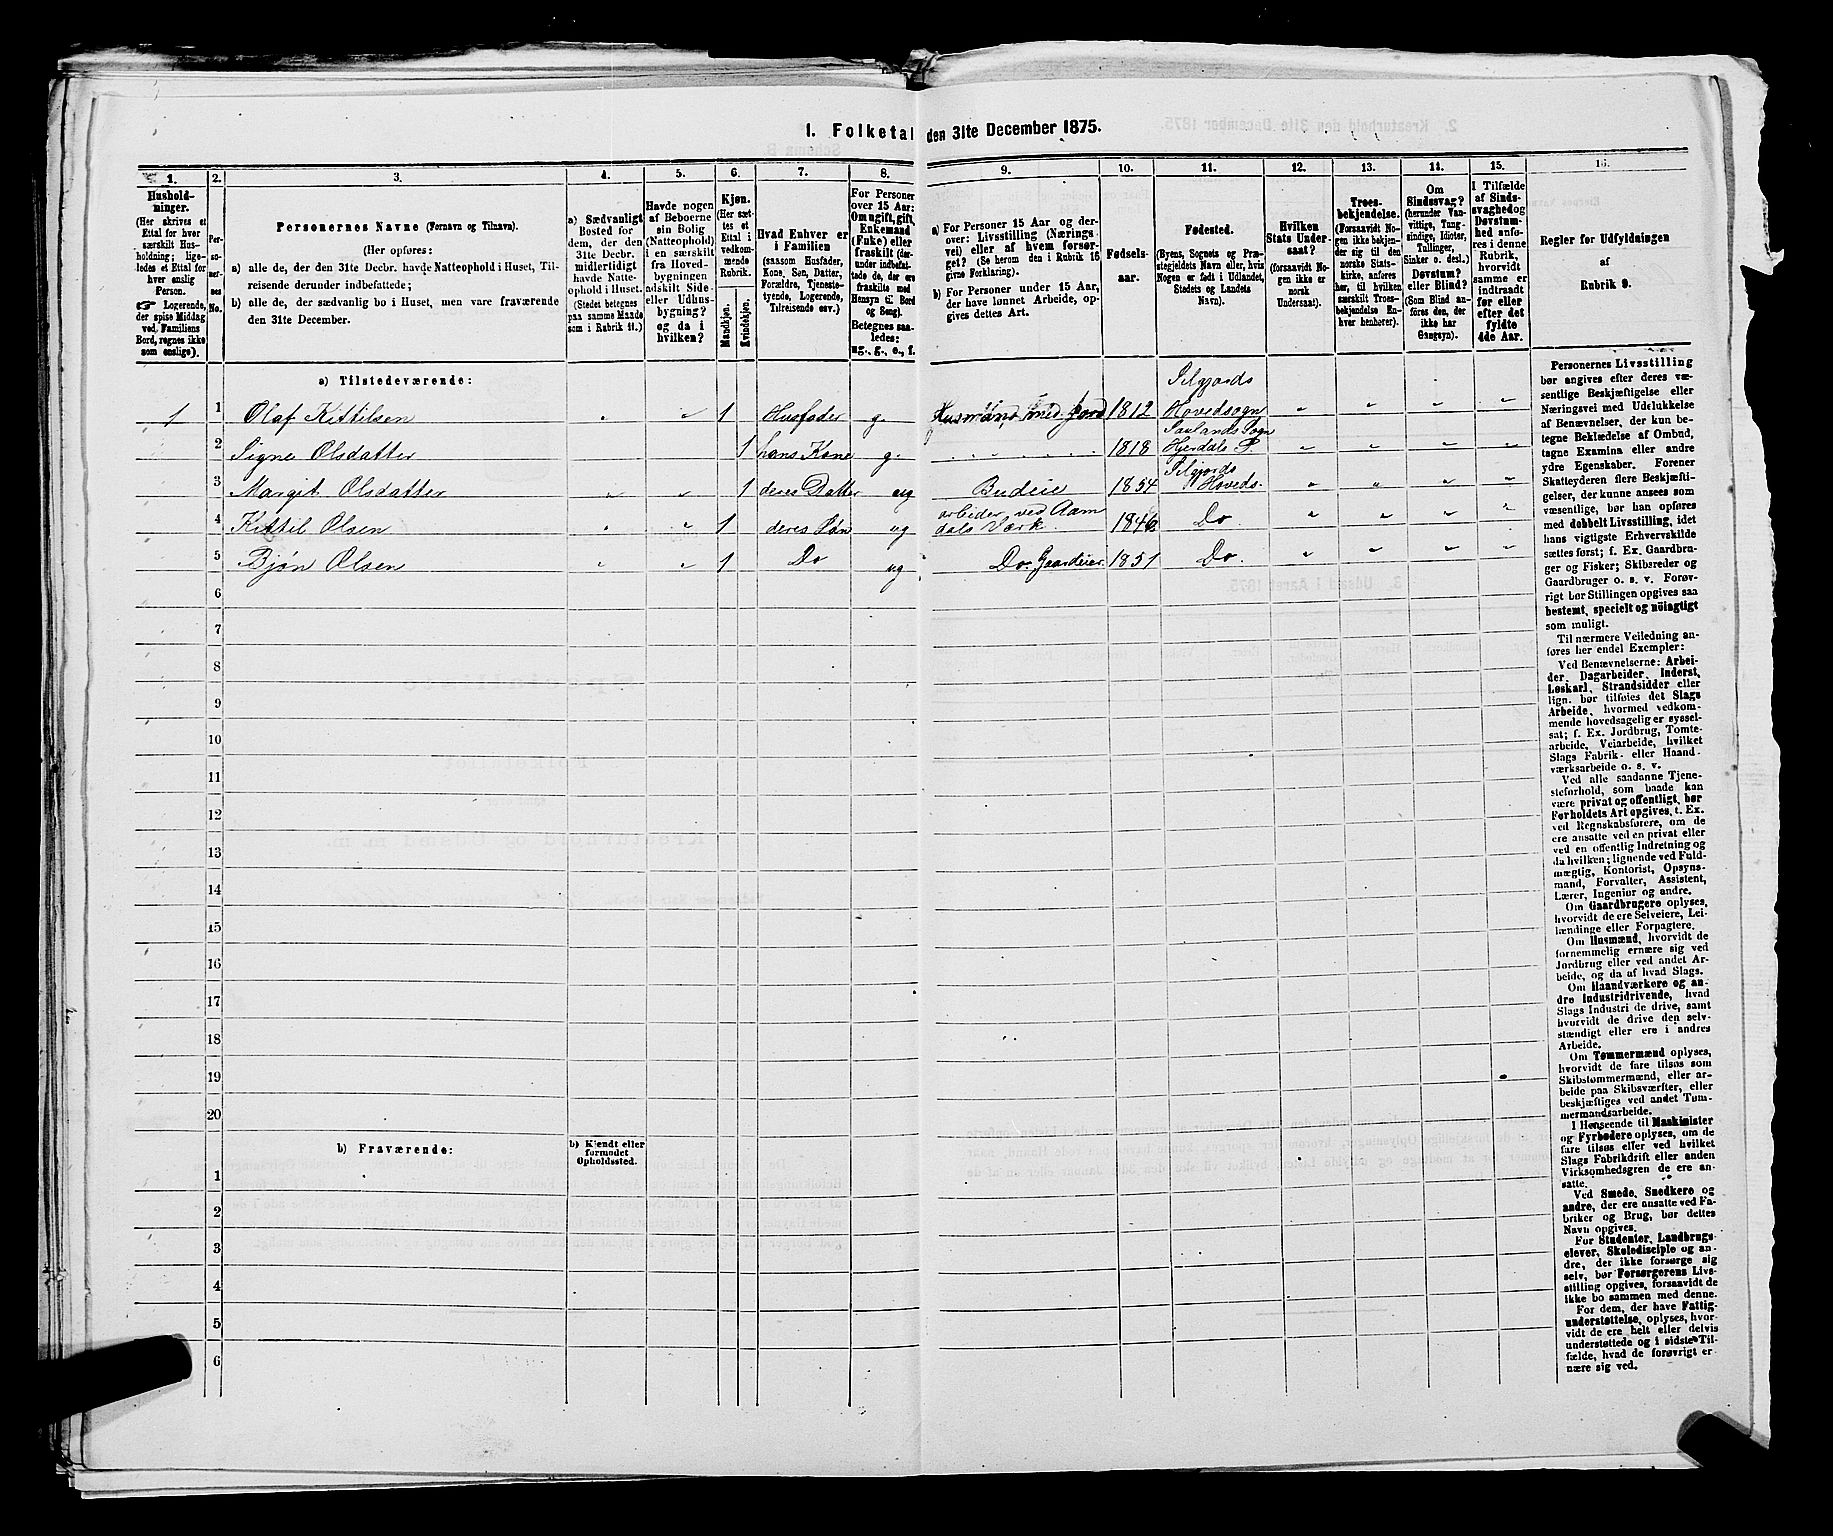 1. Folketal den 31te December 1875.
1.
2.
3.
4.
5.
6.
7.
8.
9.
10.
11.
12.
13.
14.
15.
16.
Hushold-
ninger.
(Her skrives et
Ettal for hver
særskilt Hus-
holdning; lige-
ledes et Ettal for
hver enslig
Person.
☞ Logerende,
der spise Middag
ved Familiens
Bord, regnes ikke
som enslige).
Per-
soner-
nes
No.
Personernes Navne (Fornavn og Tilnavn).
(Her opføres:
a) alle de, der den 31te Decbr. havde Natteophold i Huset, Til-
reisende derunder indbefattede;
b) alle de, der sædvanlig bo i Huset, men vare fraværende
den 31te December.
a) Sædvanligt
Bosted for
dem, der den
31te Decbr.
midlertidigt
havde Natte-
ophold i Huset.
(Stedet betegnes
paa samme Maade
som i Rubrik 11.)
Havde nogen
af Beboerne
sin Bolig
(Natteophold)
i en særskilt
fra Hoved-
bygningen
adskilt Side-
eller Udhus-
bygning?
og da i
hvilken?
Kjøn.
(Her sæt-
tes et
Ettal i
vedkom-
mende
Rubrik.
Mandkjøn.
Kvindekjøn.
Hvad Enhver er
i Familien
(saasom Husfader,
Kone, Søn, Datter,
Forældre, Tjeneste-
tyende, Logerende,
Tilreisende osv.)
For Personer
over 15 Aar:
Om ugift, gift,
Enkemand
(Enke) eller
fraskilt (der-
under indbefat-
tede de, der ere
fraskilte med
Hensyn til Bord
og Seng).
Betegnes saa-
ledes:
ug., g., e., f.
a) For Personer 15 Aar og der-
over: Livsstilling (Nærings-
vei) eller af hvem forsør-
get? (Se herom den i Rubrik 16
givne Forklaring).
b) For Personer under 15 Aar,
der have lønnet Arbeide, op-
gives dettes Art.
Fødsels-
aar.
Fødested.
(Byens, Sognets og Præ-
stegjeldets Navn eller, hvis
Nogen er født i Udlandet,
Stedets og Landets
Navn).
Hvilken
Stats Under-
saat?
(forsaavidt No-
gen ikke er
norsk
Undersaat).
Troes-
bekjendelse.
(Forsaavidt No-
gen ikke bekjen-
der sig til den
norske Stats-
kirke, anføres
her, til hvilken
særskilt Troes-
bekjendelse En-
hver henhører).
Om
Sindssvag?
(herunder Van-
vittige, Tung-
sindige, Idioter,
Tullinger,
Sinker o. desl.)
Døvstum?
eller Blind?
(Som Blind an-
føres den, der
ikke har
Gangsyn).
I Tilfælde
af Sinds-
svaghed og
Døvstum-
hed anfø-
res i denne
Rubrik,
hvorvidt
samme er
indtraadt
før eller
efter det
fyldte
4de Aar.
Regler for Udfyldningen
af
Rubrik 9.
a) Tilstedeværende:
1 1 Olaf Kittilsen " " 1 Husfader g. Husmand med Jord 1812 Hovedsogn " " " "
2 Signe Olsdatter 1 hans Kone g. " " " 1818 Saulands Sogn
Hjerdals P. " " " "
3 Margit Olsdatter " " 1 deres Datter ug Budeie 1854 Hoveds. " " " "
4 Kittil Olsen " " 1 deres Søn ug arbeider ved Aam
dals Værk. 1846 Do " " " "
5 Bjøn Olsen " " 1 Do ug Do. Gaardeier. 1851 Do. " " " "
6
7
8
9
10
11
12
13
14
15
16
17
18
19
20
b) Fraværende:
b) Kjendt eller
formodet
Opholdssted.
1
2
3
4
5
6
Personernes Livsstilling
bør angives efter deres væ-
sentlige Beskjæftigelse eller
Næringsvei med Udelukkelse
af Benævnelser, der kun be-
tegne Beklædelse af Ombud,
tagne Examina eller andre
ydre Egenskaber. Forener
Skatteyderen flere Beskjæfti-
gelser, der kunne ansees som
væsentlige, bør han opføres
med dobbelt Livsstilling, idet
hans vigtigste Erhvervskilde
sættes først; f. Ex. Gaardbru-
ger og Fisker; Skibsreder og
Gaardbruger o. s. v. Forøv-
rigt bør Stillingen opgives saa
bestemt, specielt og nöiagtigt
som muligt.
Til nærmere Veiledning an-
føres her endel Exempler:
Ved Benævnelserne: Arbei-
der, Dagarbeider, Inderst,
Løskarl, Strandsidder eller
lign. bør tilføies det Slags
Arbeide, hvormed vedkom-
mende hovedsagelig er syssel-
sat; f. Ex. Jordbrug, Tomte-
arbeide, Veiarbeide, hvilket
Slags Fabrik- eller Haand-
værksarbeide o. s. v.
Ved alle saadanne Tjene-
steforhold, som baade kan
være privat og offentligt, bør
Forholdets Art opgives, t. Ex.
ved Regnskabsførere, om de
ere ansatte ved en privat eller
ved en offentlig Indretning og
da hvilken; lignende ved Fuld-
mægtig, Kontorist, Opsyns-
mand, Forvalter, Assistent,
Lærer, Ingeniør og andre.
Om Gaardbrugere oplyses,
hvorvidt de ere Selveiere, Lei-
lændinge eller Forpagtere.
Om Husmænd, hvorvidt de
fornemmelig ernære sig ved
Jordbrug eller ved andet Ar-
beide, og da af hvad Slags.
Om Haandværkere og an-
dre Industridrivende, hvad
Slags Industri de drive, samt
hvorvidt de drive den selv-
stændigt eller ere i andres
Arbeide.
Om Tømmermænd oplyses,
hvorvidt de fare tilsøs som
Skibstømmermænd, eller ar-
beide paa Skibsværfter, eller
beskjæftiges ved andet Tøm-
mermandsarbeide.
I Henseende til Maskinister
og Fyrbødere oplyses, om de
fare tilsøs eller ved hvilket
Slags Fabrikdrift eller anden
Virksomhedsgren de ere an-
satte.
Ved Smede, Snedkere og
andre, der ere ansatte ved Fa-
briker og Brug, bør dettes
Navn opgives.
For Studenter, Landbrugs-
elever, Skoledisciple og an-
dre, der ikke forsørge sig
selv, bør Forsørgerens Livs-
stilling opgives, forsaavidt de
ikke bo sammen med denne.
For dem, der have Fattig-
understøttelse, oplyses, hvor-
vidt de ere helt eller delvis
understøttede og i sidste Til-
fælde, hvad de forøvrigt er-
nære sig ved.